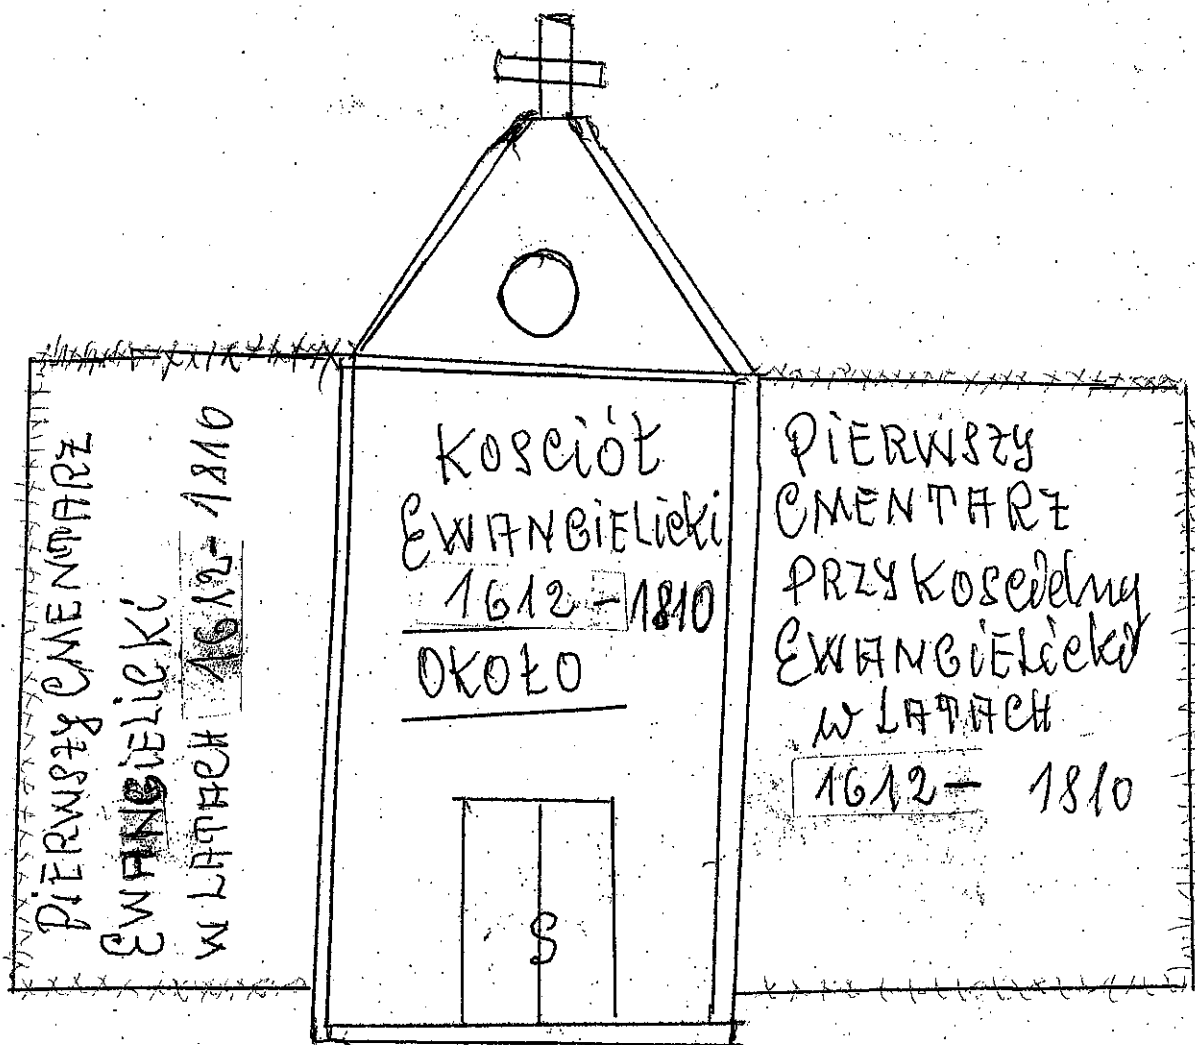 PiERWSZY CMENTARZ
EWANGiELiCKi
W LATACH 1612-1810
KOSCiÓŁ
EWANGiELicki
1612-1810
OKOŁO
S
PiERWSZY
CMENTARZ
PRZYKOSCielny
EWANGiELicki
w LATACH
1612- 1810